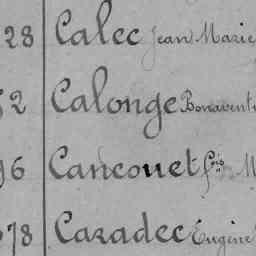 28 Calec Jean Marie
52 Calonge Bonavent
96 Cancouet fçois M
978 Caradec Eugène